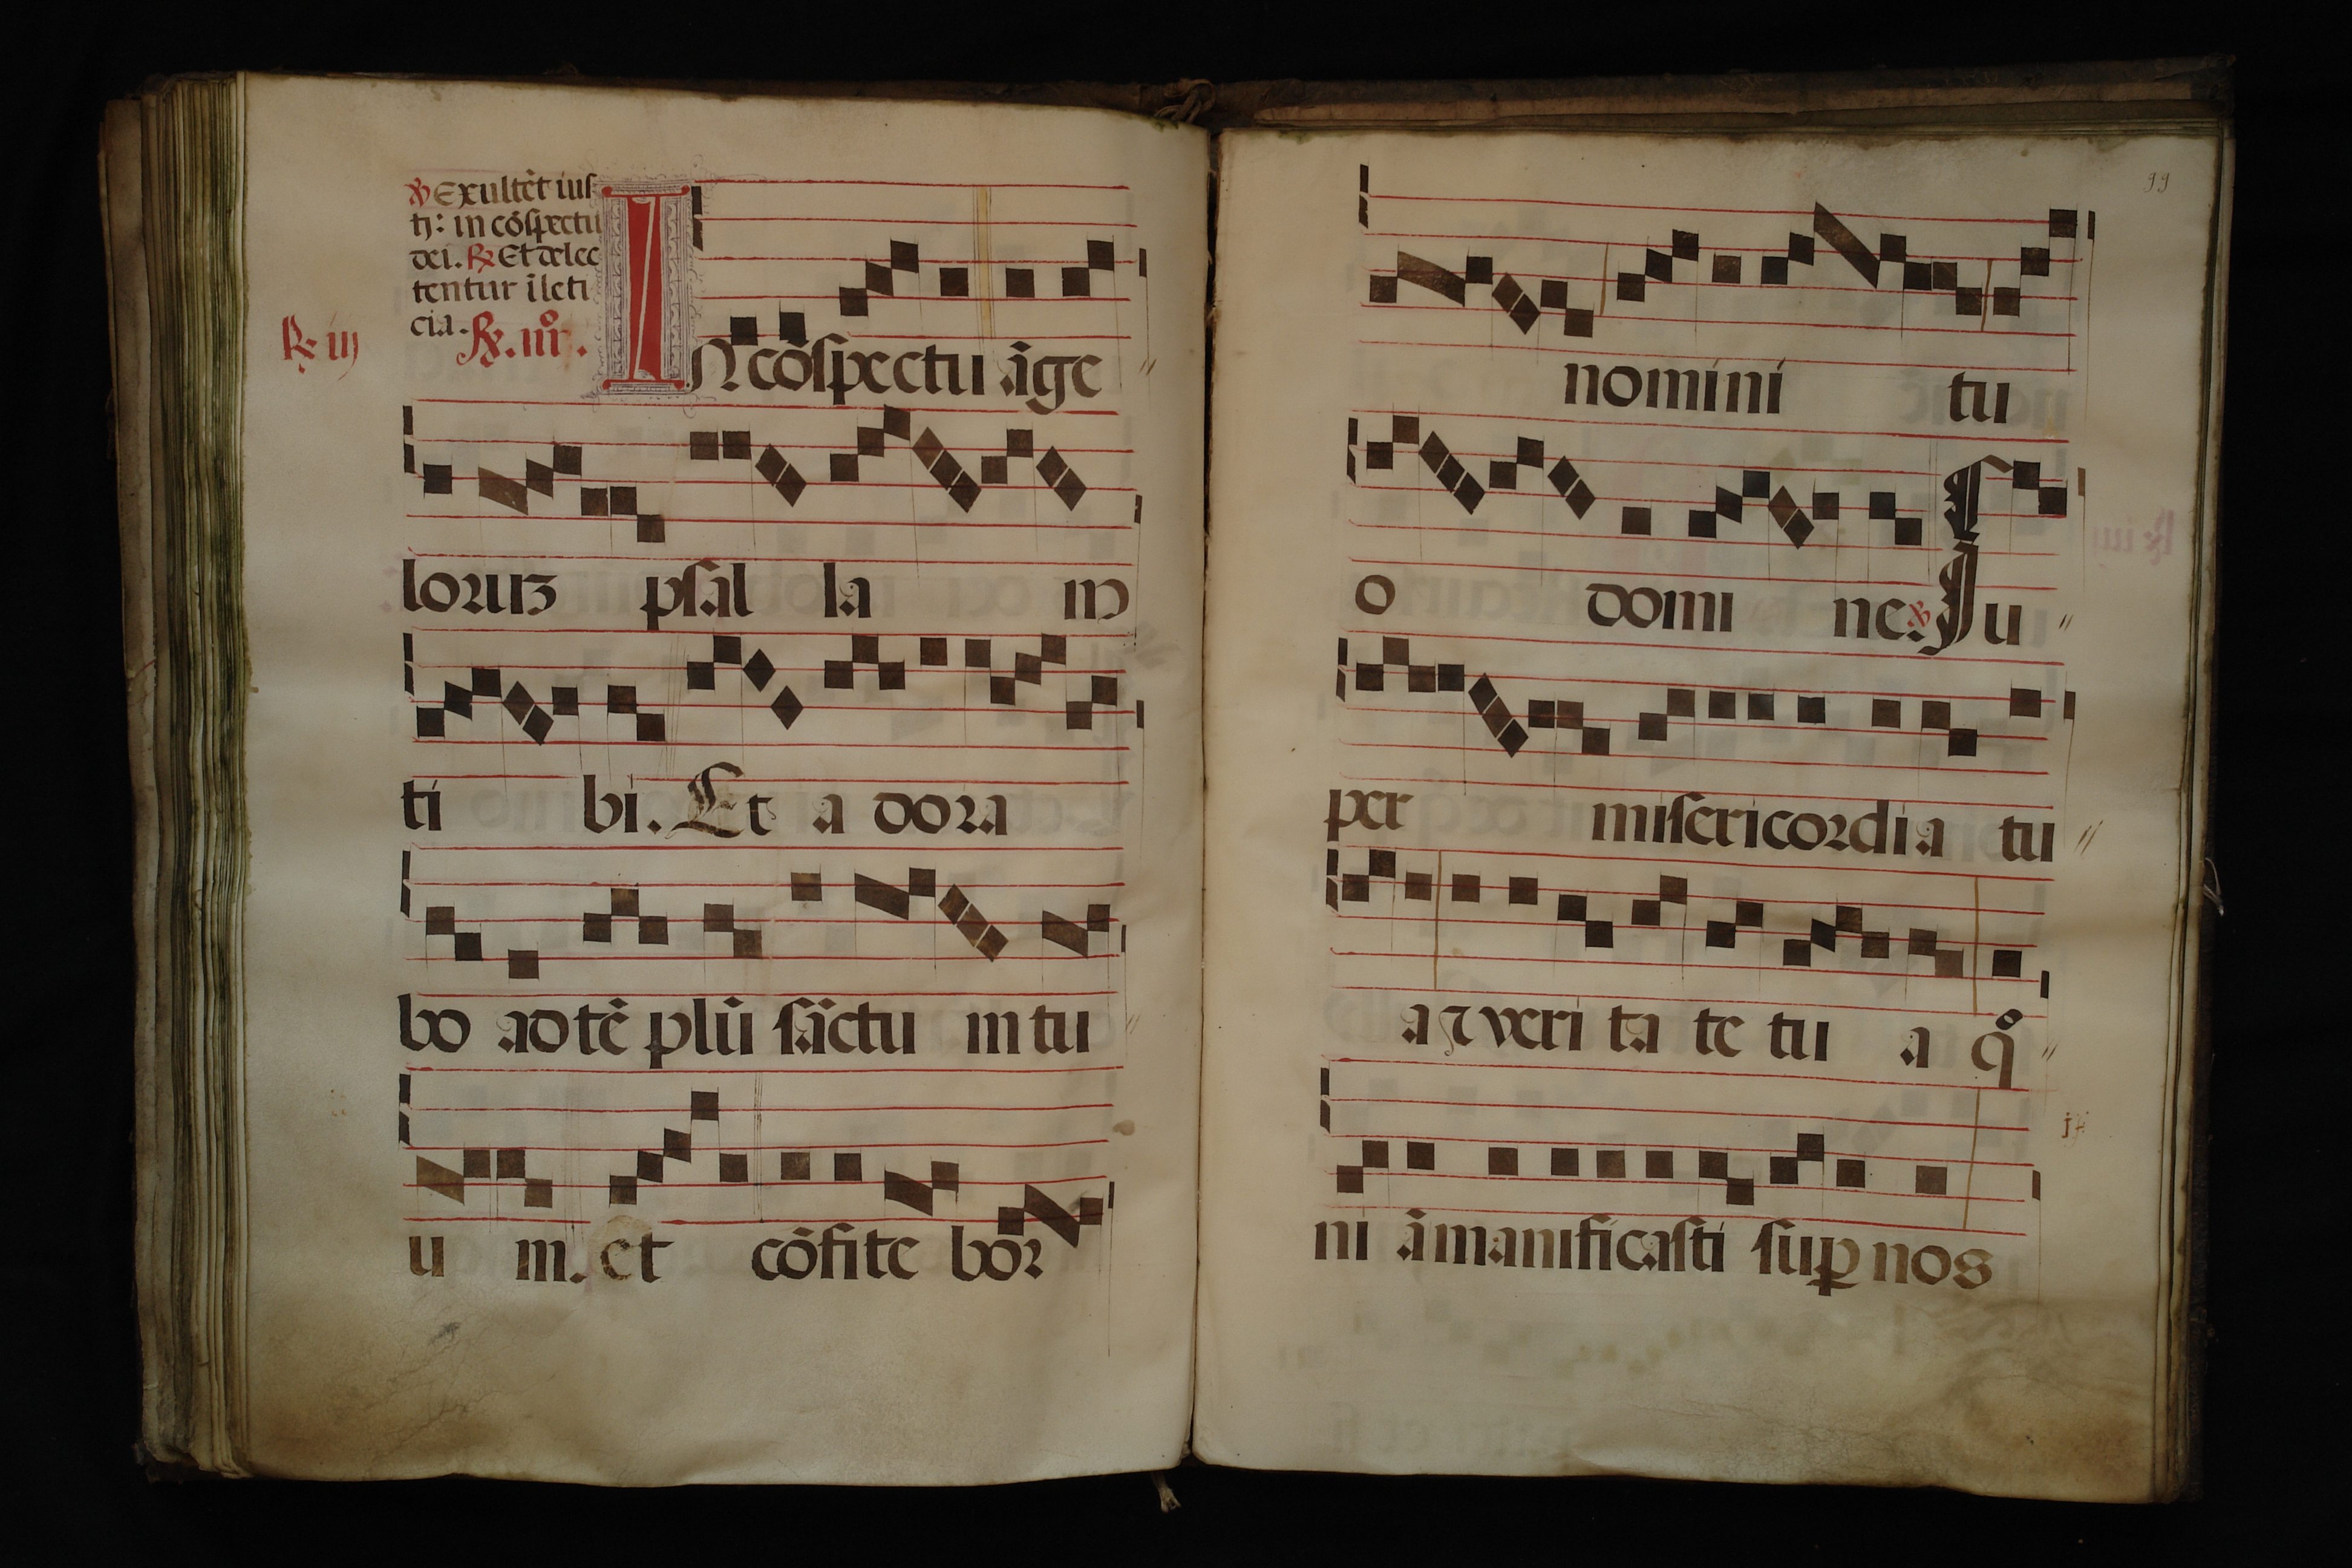 ℣ Exultēt ius
tj: in cōspectu
dei. ℟ Et delec
tentur ī leti
cia. ℟. iii⁰.
℟. iij
IN cōspectu āge
loruʒ psal la m
ti bi. Et a dora
bo ad tē plū sāctu m tu
u m. et cōfite bor
99
nomini tu
o domi ne. ℣ Iu
per misericordia tu
a ⁊ veri ta te tu a qͦ
ni āmanificasti suꝑ nos